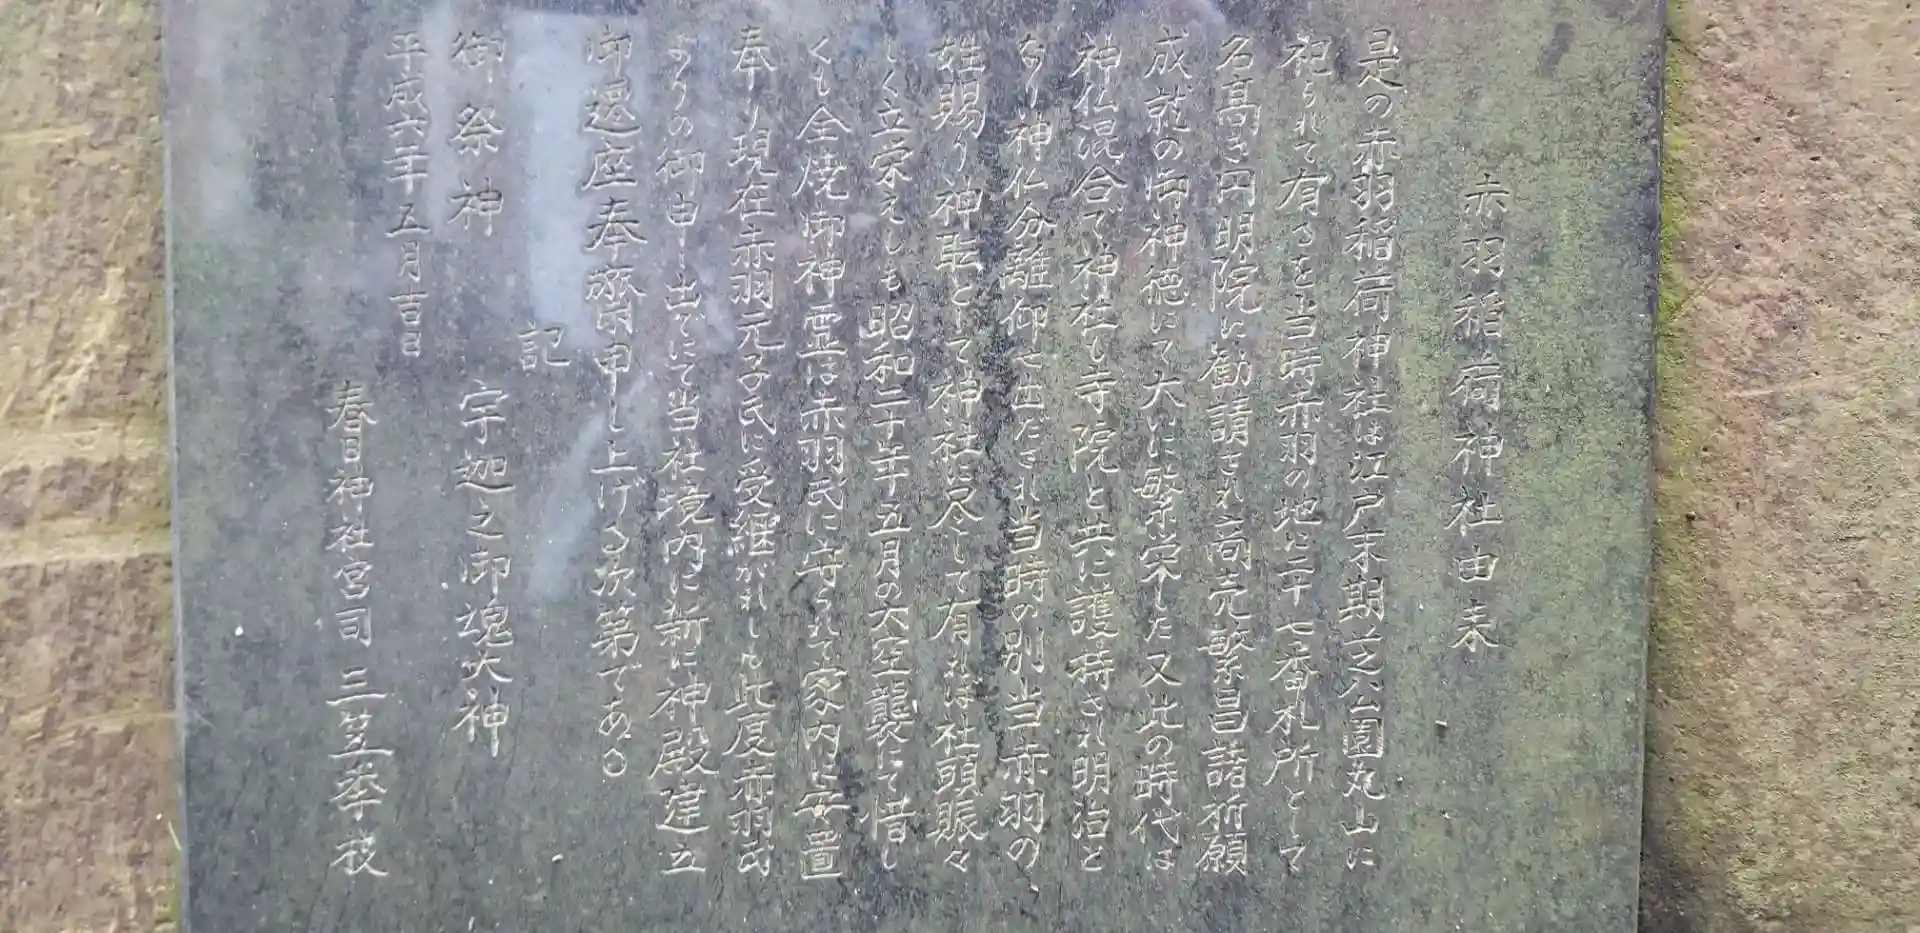 赤羽稲荷神社由来
是の赤羽稲荷神社は江戸末期芝公園丸山に
祀られて有るを当時赤羽の地に二十七番札所として
名高き円明院に勧請され商売繁昌諸祈願
成就の御神徳にて大いに繁栄した又此の時代は
神仏混合で神社も寺院と共に護持され明治と
なり神仏分離仰せ出たされ当時の別当赤羽の
姓賜り神職として神社に尽して有れば社頭賑々
しく立栄えしも昭和二十年五月の大空襲にて惜し
くも全焼御神霊は赤羽氏に守られて家内に安置
奉り現在赤羽元子氏に受継がれしも此度赤羽氏
よりの御申し出でにて当社境内に新に神殿建立
御遷座奉齋申し上げる次第である
記
御祭神 宇迦之御魂大神
平成六年五月吉日
春日神社宮司 三笠季枝